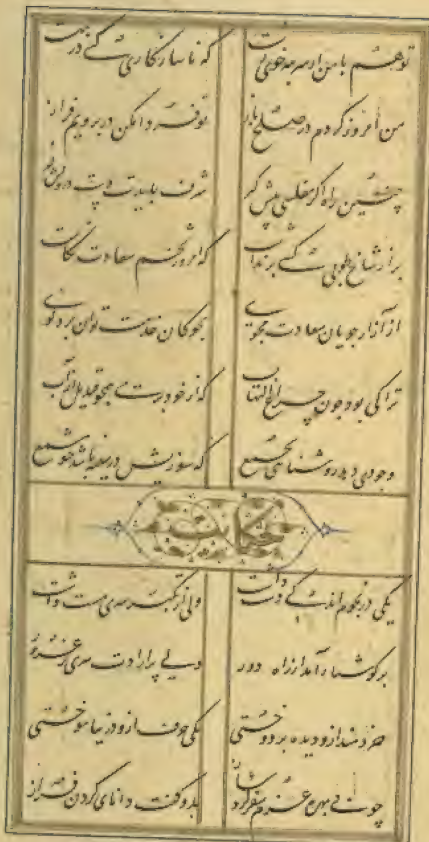 تو هم با من از سر بنه خوی زشت که ناسازگاری کند در بهشت
من امروز کردم در صلح باز تو فردا مکن در برویم فراز
چنین راه اگر مقبلی پیش گیر شرف بایدت دست درویش گیر
بر از شاخ طوبی کسی برنداشت که امروز تخم سعادت نکاشت
ارادت نداری سعادت مجوی بچوگان خدمت توان برد گوی
ترا کی بود چون چراغ التهاب که از خود پری همچو قندیل از آب
وجودی دهد روشنائی بجمع که سوزیش در سینه باشد چو شمع
حکایت
یکی در نجوم اندکی دست داشت ولی از تکبر سری مست داشت
بر کوشیار آمد از راه دور دلی پر ارادت سری پر غرور
خردمند ازو دیده بر دوختی یکی حرف ازو در نیاموختی
چو بی بهره عزم سفر کرد باز بدو گفت دانای گردن فراز